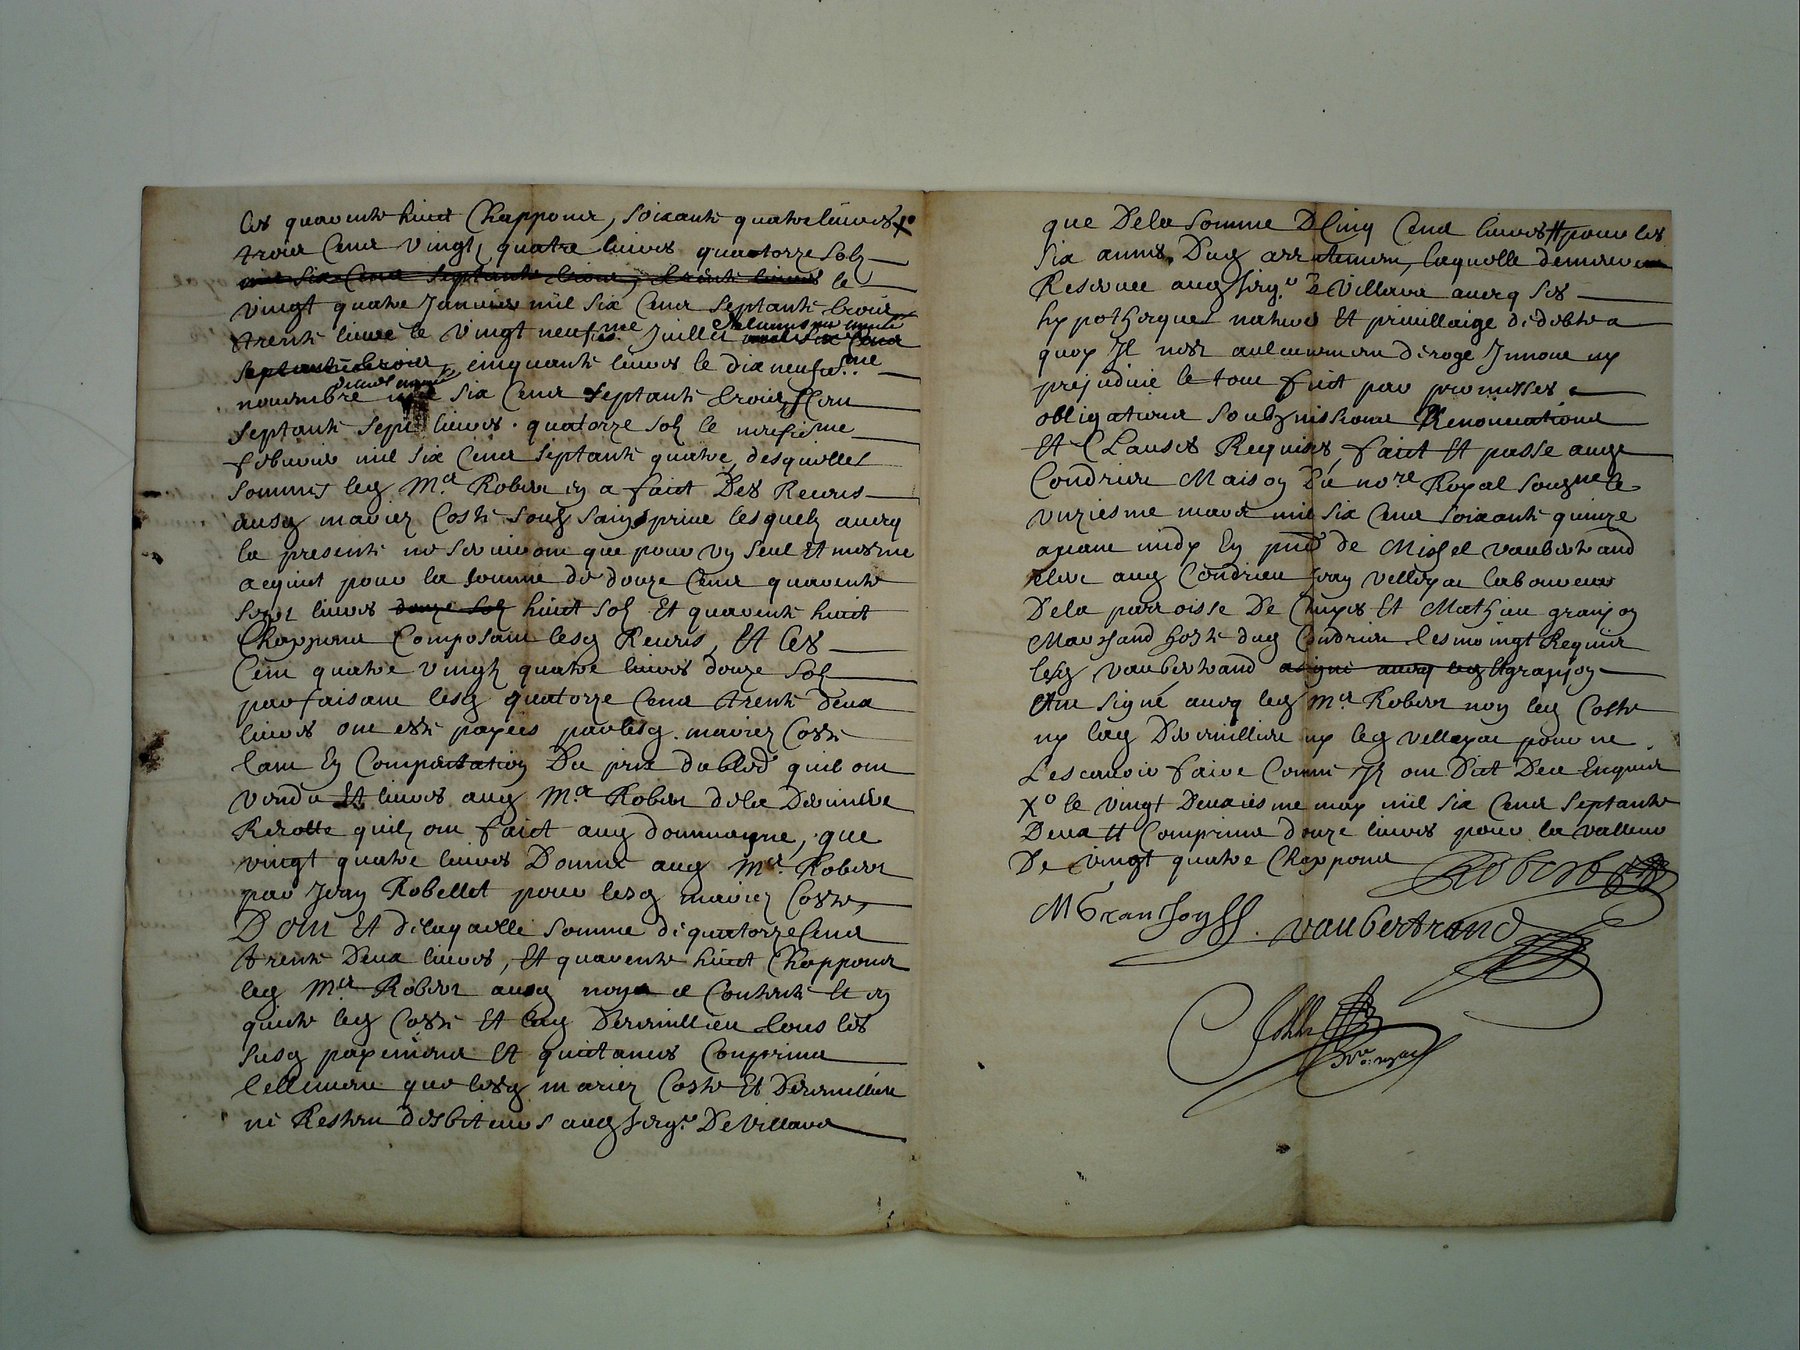 les quarente huict Chappons, soixante quatre livres X°
trois Cens vingt quatre livres quatorze solz
mil six Cens septante trois, trente livres le
vingt quatre Janvier mil six Cens septante trois
trente livres le vingt neufme Juillet
septante trois, cinquante livres le dix neufieme
novembre mil six Cens septante trois, Cen
septante sept livres quatorze solz le neufiesme
febvrier mil six Cens septante quatre, desquelles
sommes led Mre Robert en a faict Des Receus
ausd mariez Coste soubz saing prive lesquelz avecq
la presente ne serviront que pour un seul Et mesme
acquict pour la somme de douze Cens quarente
sept livres douze solz huict solz Et quarente huict
Chappons Composant lesd Receus, Et Les
Cent quatre vingtz quatre livres douze solz
parfaisant lesd quatorze Cens trente deux
livres ont esté payées par lesd mariez Coste
tant En Compentation Du prix du bled quilz ont
vendu Et livres aud Mre Robert de la
Recolte quilz ont faict aud dommayne, que
vingt quatre livres Donné aud Mre Robert
par Jean Robellet pour lesd mariez Coste,
Dont Et de laquelle somme de quatorze Cens
trente Deux livres, Et quarente huict Chappons
led Mre Robert aud nom ce Contente Et en
quicte led Coste Et lad Dervieulliere tous les
susd payements Et quictances Comprins
tellement que lesd mariez Coste Et Dervieulliere
ne Restent debiteurs aud Seigr De Villars
que De la somme De Cinq Cens livres # pour les
six années Dud arrentement, laquelle demeure
Reservee aud Seigr De Villars avecq ses
hypotheques nature Et privillaige de debte a
quoy Il nest aulcunement deroge Innove ny
prejudicié le tout fait par promesses
obligations soubzmissions Renonciations
Et Clauses Requises, faict Et passé aud
Condrieu Maison Du nore Royal soubzne le
unziesme mars mil six Cens soixante quinze
avant midy En pnce de Michel vaubertrand
clerc aud Condrieu Jean velleyac laboureur
De la parroisse De Et Mathieu granjon
Marchand hoste dud Condrieu tesmoingt Requis
lesd vaubertrand a signé avecq led Et granjon
Ont signé avecq led Mre Robert non led Coste
ny lad Dervieulliere ny led velleyac pour ne
Lescavoir faire Comme Ilz ont Dict De ce Enquis
X° le vingt Deuxiesme may mil six Cens septante
Deux # Comprins douze livres pour la valleur
De vingt quatre Chappons Robert
M Granjon vaubertrand